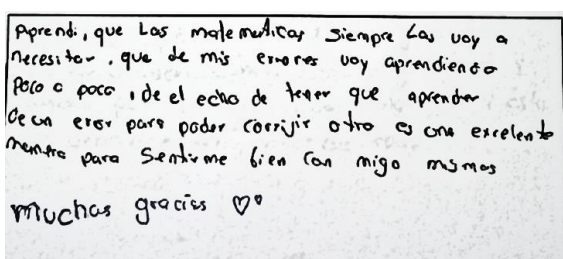 Aprendi, que Las matematicas siempre Las voy a
necesitar, que de mis errores voy aprendiendo
poco a poco, de el echo de tener que aprender
de un eror para poder corrijir otro es una excelente
manera para Sentirme bien con migo mismas
muchas gracias ♡♡